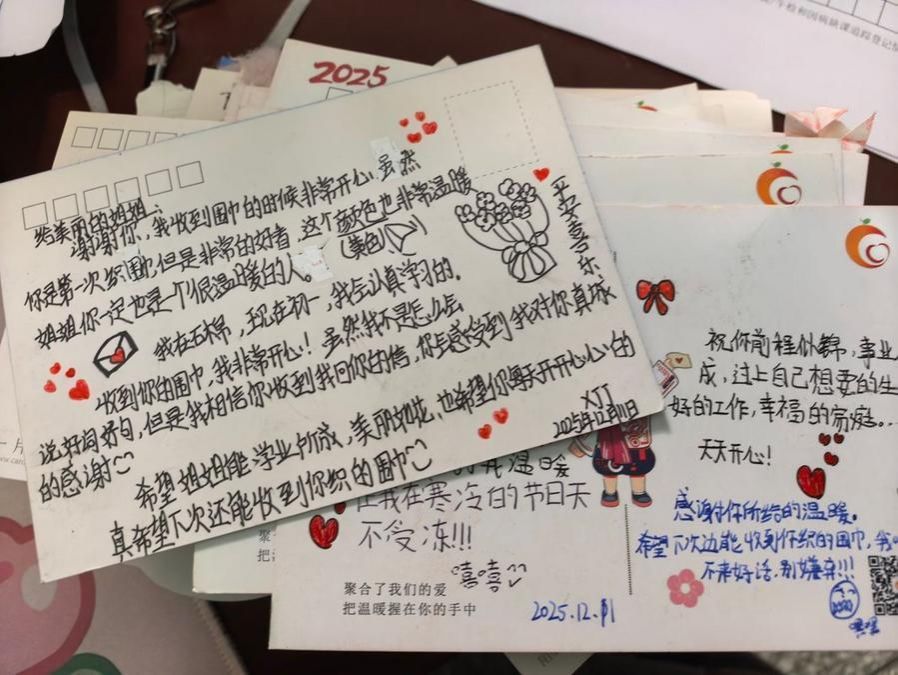 2025
给美丽的姐姐：
谢谢你，我收到围巾的时候非常开心！虽然
你是第一次织围巾，但是非常的好看，这个颜色也非常温暖
(黄色)
姐姐你一定也是一个很温暖的人。
我在五楠，现在初一，我会认真学习的。
收到你的围巾，我非常开心！虽然我不是怎么会
说好词好句，但是我相信你收到我回你的信，你能感受到我对你真诚
的感谢
希望姐姐能学业有成，美丽如花，也希望你每天开开心心的
真希望下次还能收到你织的围巾
XJJ
2025年12月11日
平安喜乐
温暖
让我在寒冷的节日天
不受冻!!!
嘻嘻
聚合了我们的爱
把温暖握在你的手中
2025.12.11
祝你前程似锦，事业
成，过上自己想要的生
好的工作，幸福的家庭..
天天开心!
感谢你所给的温暖。
希望下次还能收到你织的围巾，我
不来好话，别嫌弃!!!